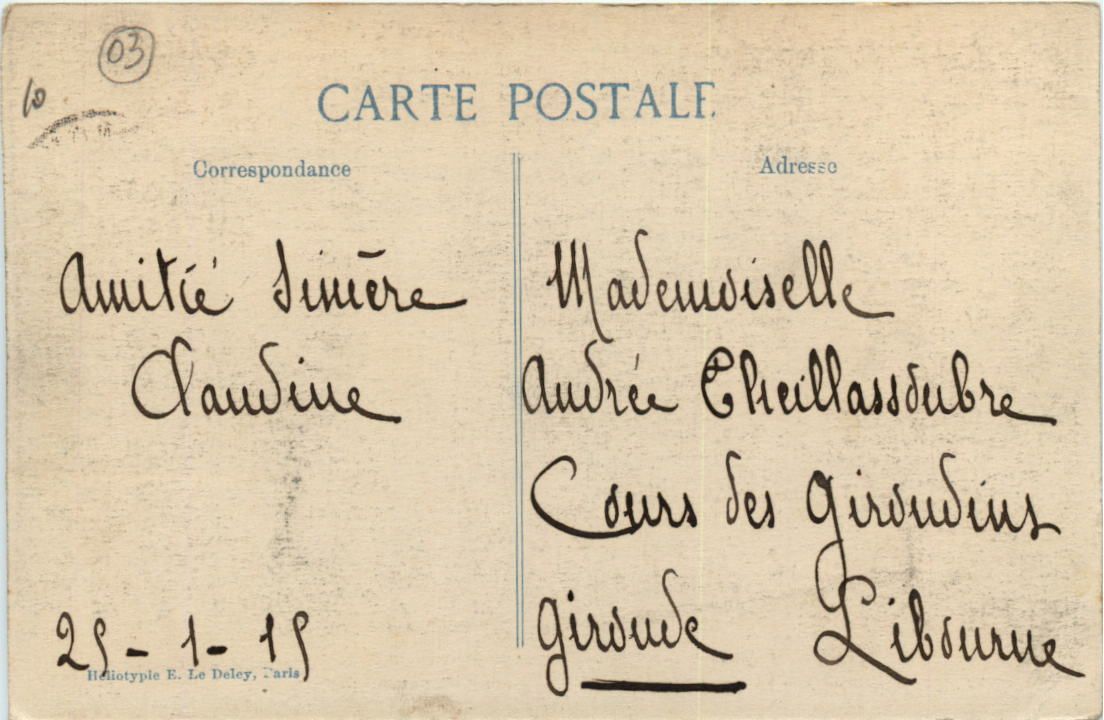 03
10
CARTE POSTALE
Correspondance
Amitié Sincère
Claudine
25-1-15
Héliotypie E. Le Deley, Paris
Adresse
Mademoiselle
Andrée Cheillassoubre
Cours des Girondins
Gironde Libourne